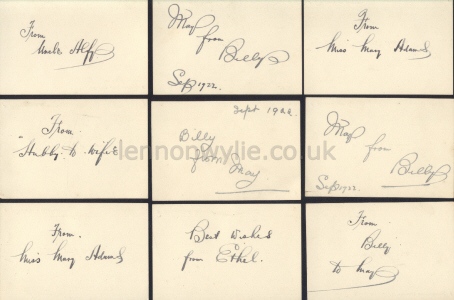 From
Uncle Alf
May
from
Billy
Sep 1922.
From
Miss Mary Adams
From
"Hubby" to Wife
Sept 1922
Billy
from May
May
from
Billy
Sep 1922.
From.
Miss Mary Adams
Best Wishes
from Ethel.
From
Billy
to May
lennonwylie.co.uk